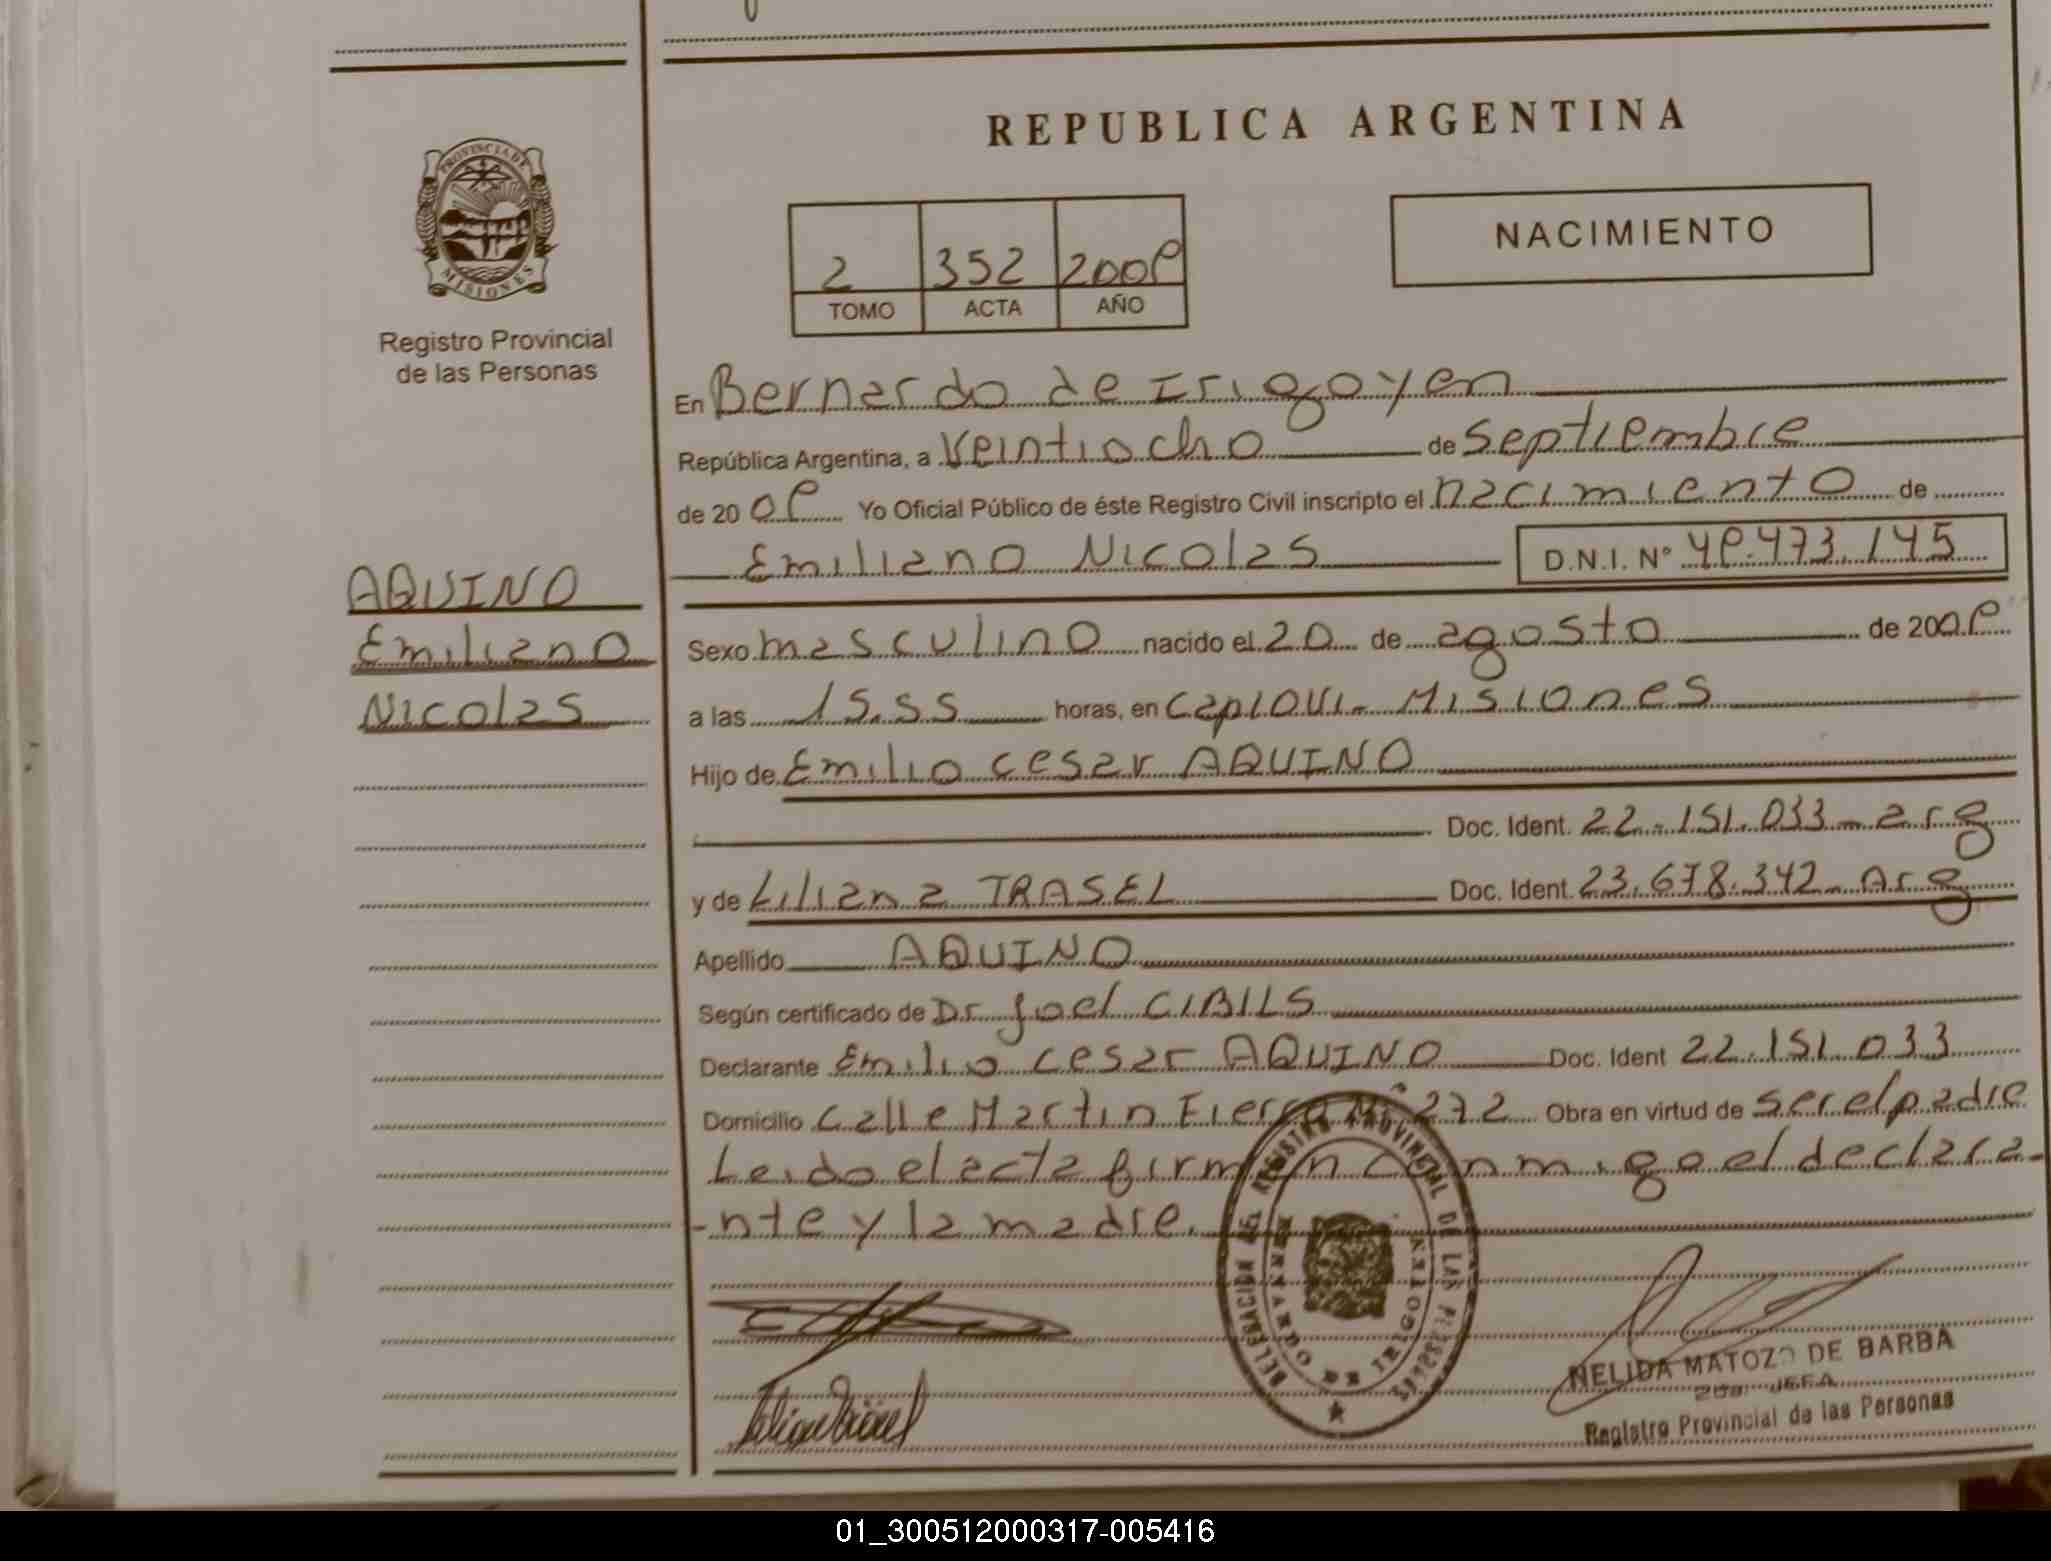 REPUBLICA ARGENTINA
PROVINCIA DE
MISIONES
NACIMIENTO
2 352
TOMO ACTA AÑO
Registro Provincial
de las Personas
En Bernardo de Irigoyen
República Argentina, a Veintiocho de Septiembre
de Yo Oficial Público de éste Registro Civil inscripto el nacimiento de
Emiliano Nicolas D.N.I. Nº
AQUINO
Emiliano
Nicolas
Sexo masculino nacido el 20 de agosto de
a las 15.55 horas, en Capiovi - Misiones
Hijo de Emilio Cesar AQUINO
Doc. Ident. 22.151.033 - arg
y de Liliana TRASEL Doc. Ident. 23.678.342 - Arg
Apellido AQUINO
Según certificado de Dr Joel CIBILS
Declarante Emilio Cesar AQUINO Doc. Ident 22.151.033
Domicilio Calle Martin Fierro Nº 272 Obra en virtud de ser el padre
Leido el acta firman conmigo el declara-
-nte y la madre.
DELEGACION DEL REGISTRO PROVINCIAL DE LAS PERSONAS
BERNARDO DE IRIGOYEN
NELIDA MATOZO DE BARBA
JEFA
Registro Provincial de las Personas
01_300512000317-005416